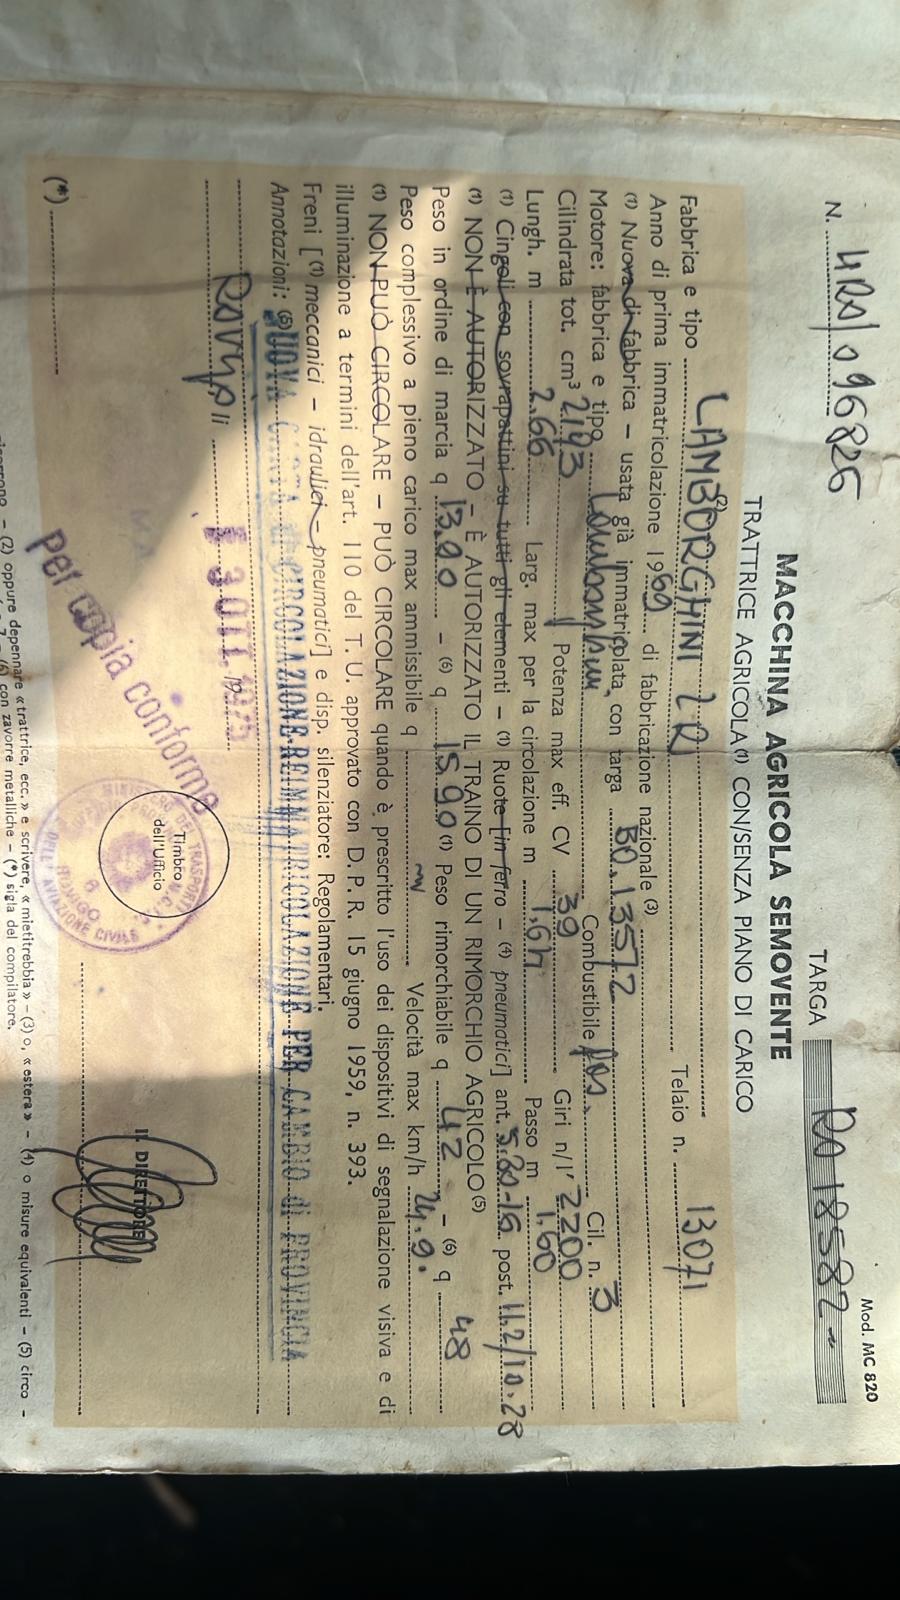 Mod. MC 820
N. 4R0/096826 TARGA RO 18582
MACCHINA AGRICOLA SEMOVENTE
TRATTRICE AGRICOLA (1) CON/SENZA PIANO DI CARICO
(2)
Fabbrica e tipo LAMBORGHINI 2R Telaio n. 13071
Anno di prima immatricolazione 1969 di fabbricazione nazionale (3)
(1) Nuova di fabbrica – usata già immatricolata con targa BO.13572
Motore: fabbrica e tipo Lamborghini Combustibile gas. Cil. n. 3
Cilindrata tot. cm³ 2193 Potenza max eff. CV 39 Giri n/1' 2200
Lungh. m 2.66 Larg. max per la circolazione m 1,64 Passo m 1.60
(1) Cingoli con sovrapattini su tutti gli elementi – (1) Ruote [in ferro – (4) pneumatici] ant. 5.20-16 post. 11.2/10.28
(1) NON È AUTORIZZATO – È AUTORIZZATO IL TRAINO DI UN RIMORCHIO AGRICOLO (5)
Peso in ordine di marcia q 13.90 – (6) q 15.90 (1) Peso rimorchiabile q 42 – (6) q 48
Peso complessivo a pieno carico max ammissibile q Velocità max km/h 24.9.
(1) NON PUÒ CIRCOLARE – PUÒ CIRCOLARE quando è prescritto l'uso dei dispositivi di segnalazione visiva e di
illuminazione a termini dell'art. 110 del T. U. approvato con D. P. R. 15 giugno 1959, n. 393.
Freni [(1) meccanici – idraulici – pneumatici] e disp. silenziatore: Regolamentari.
Annotazioni: NUOVA CARTA di CIRCOLAZIONE-REIMMATRICOLAZIONE PER CAMBIO di PROVINCIA
Rovigo li 3 OTT. 1975
per copia conforme
Timbro
dell'Ufficio
MINISTERO DEI TRASPORTI
DELL'AVIAZIONE CIVILE
ROVIGO
6
IL DIRETTORE
(*)
– (2) oppure depennare «trattrice, ecc.» e scrivere, «mietitrebbia» – (3) o, «estera» – (4) o misure equivalenti – (5) circo –
(6) con zavorre metalliche – (*) sigla del compilatore.